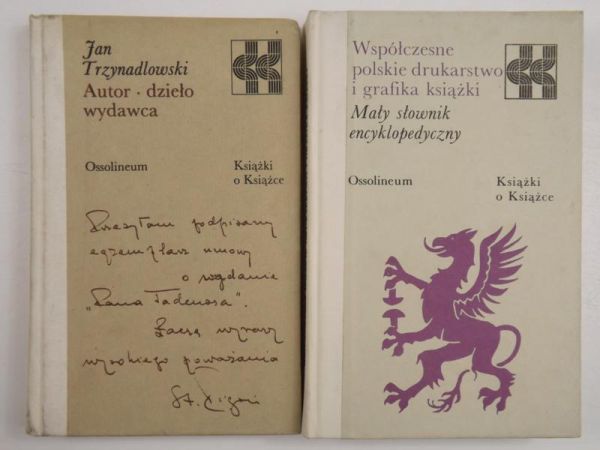 Jan
Trzynadlowski
Autor · dzieło
wydawca
Ossolineum
Książki
o Książce
Przesyłam podpisany
egzemplarz umowy
o wydanie
„Pana Tadeusza".
Łączę wyrazy
wysokiego poważania
St. Pigoń
Współczesne
polskie drukarstwo
i grafika książki
Mały słownik
encyklopedyczny
Ossolineum
Książki
o Książce